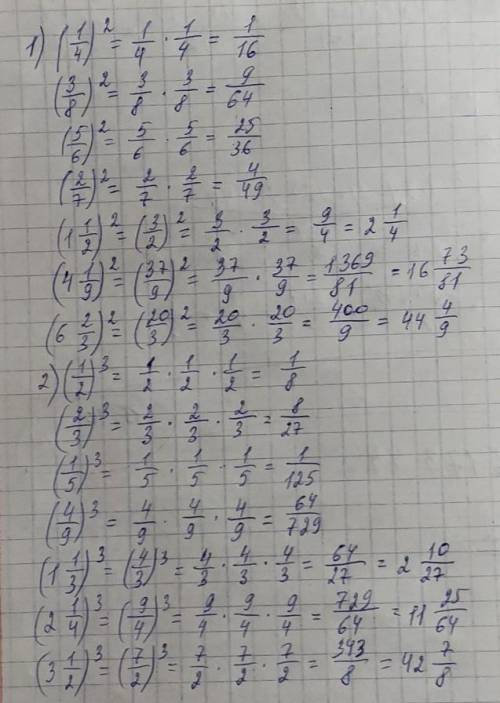 1) (1/4)² = 1/4 · 1/4 = 1/16
(3/8)² = 3/8 · 3/8 = 9/64
(5/6)² = 5/6 · 5/6 = 25/36
(2/7)² = 2/7 · 2/7 = 4/49
(1 1/2)² = (3/2)² = 3/2 · 3/2 = 9/4 = 2 1/4
(4 1/9)² = (37/9)² = 37/9 · 37/9 = 1369/81 = 16 73/81
(6 2/3)² = (20/3)² = 20/3 · 20/3 = 400/9 = 44 4/9
2) (1/2)³ = 1/2 · 1/2 · 1/2 = 1/8
(2/3)³ = 2/3 · 2/3 · 2/3 = 8/27
(1/5)³ = 1/5 · 1/5 · 1/5 = 1/125
(4/9)³ = 4/9 · 4/9 · 4/9 = 64/729
(1 1/3)³ = (4/3)³ = 4/3 · 4/3 · 4/3 = 64/27 = 2 10/27
(2 1/4)³ = (9/4)³ = 9/4 · 9/4 · 9/4 = 729/64 = 11 25/64
(3 1/2)³ = (7/2)³ = 7/2 · 7/2 · 7/2 = 343/8 = 42 7/8